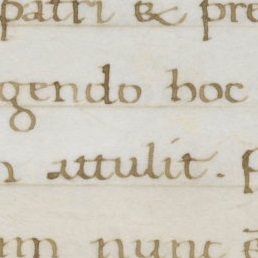 patri & pre
gendo hoc
n attulit. f
um nunc ē